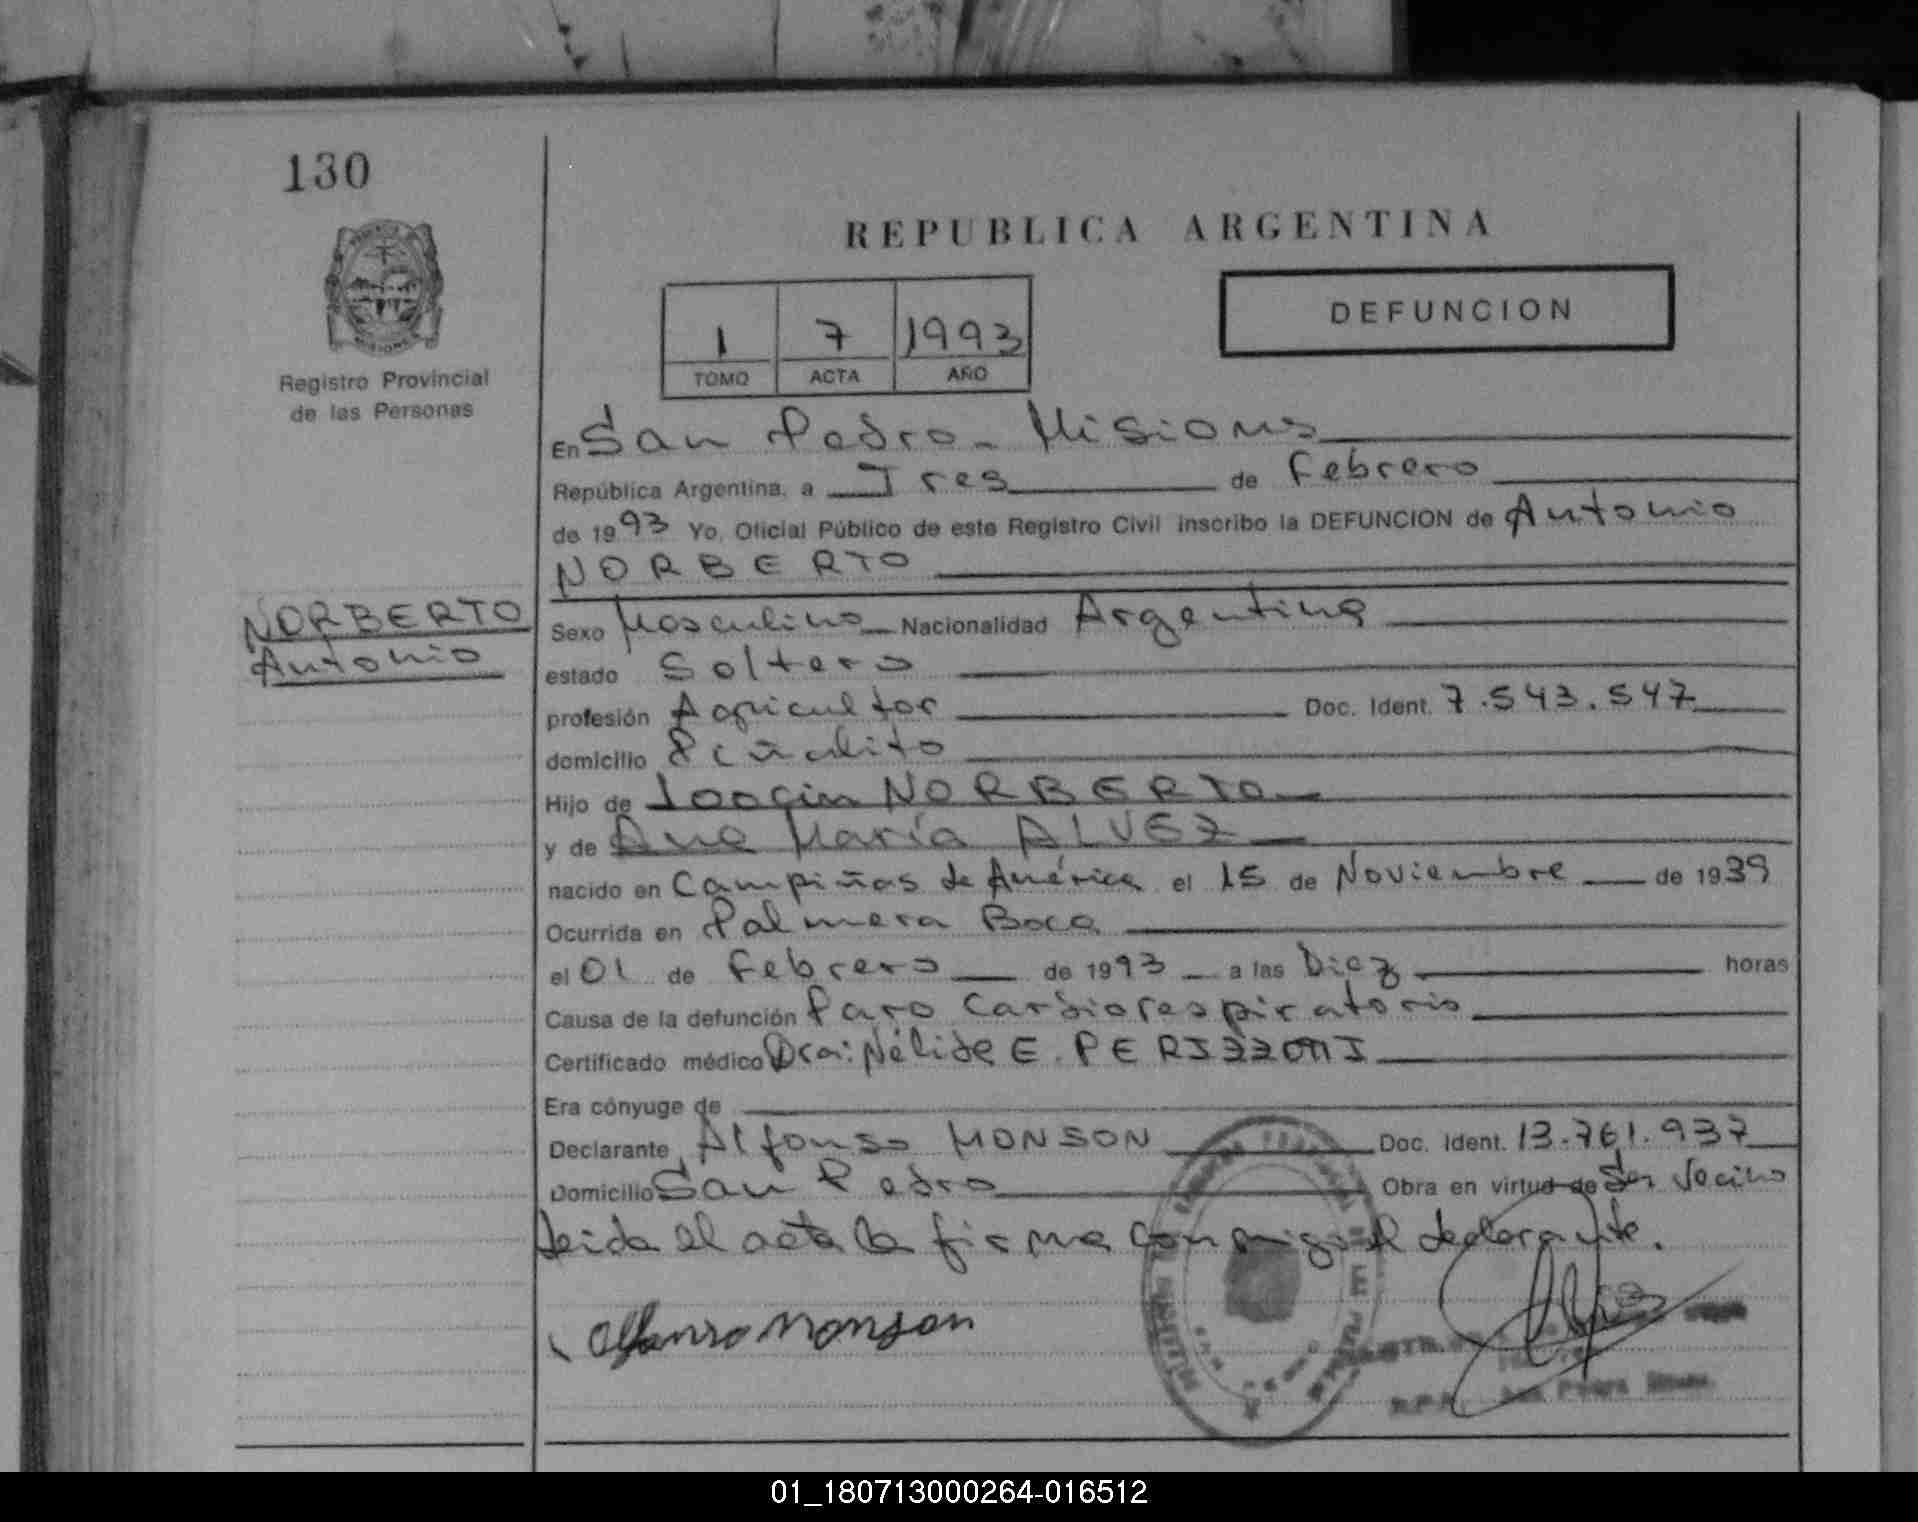 130
REPUBLICA ARGENTINA
DEFUNCION
1 7 1993
TOMO ACTA AÑO
Registro Provincial
de las Personas
En San Pedro - Misiones
República Argentina, a Tres de Febrero
de 1993 Yo, Oficial Público de este Registro Civil inscribo la DEFUNCION de Antonio
NORBERTO
NORBERTO
Antonio
Sexo Masculino Nacionalidad Argentina
estado Soltero
profesión Agricultor Doc. Ident. 7.543.547
domicilio Piñalito
Hijo de Joaqin NORBERTO
y de Ana María ALVEZ
nacido en Campiñas de América el 15 de Noviembre de 1939
Ocurrida en Palmera Boca
el 01 de Febrero de 1993 a las Diez horas
Causa de la defunción Paro Cardiorespiratorio
Certificado médico Dra: Nélida E. PERIZZONI
Era cónyuge de
Declarante Alfonso MONSON Doc. Ident. 13.761.937
Domicilio San Pedro Obra en virtud de Ser Vecino
Leida el acta la firma conmigo el declarante.
Alfonso Monson
01_180713000264-016512